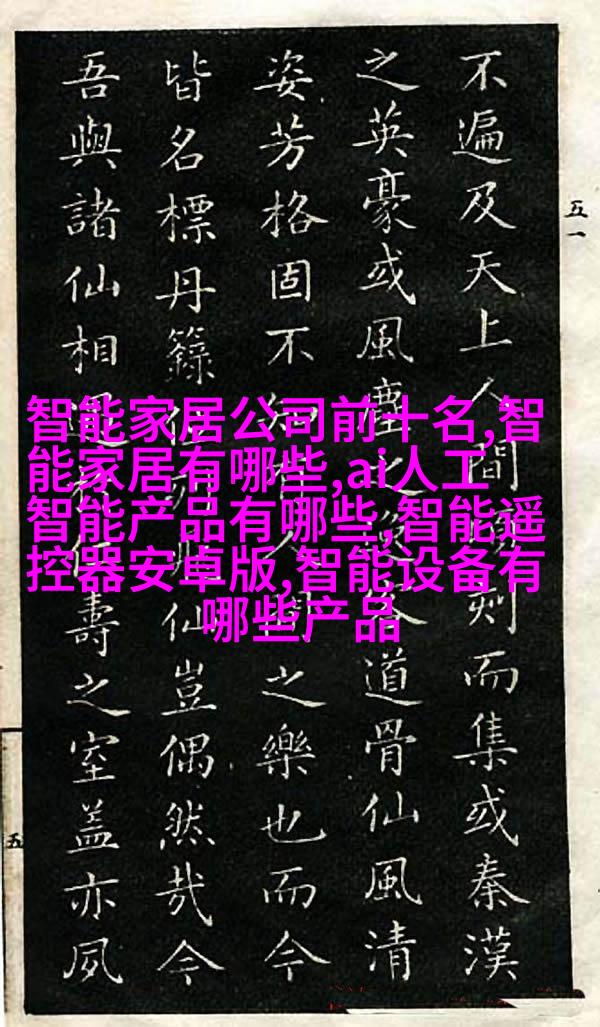 不遍及天上人間頃刻而集或秦漢
之英豪或風塵之客道骨仙風清
姿芳格固不知有人間之樂也而今
皆名標丹籙仙豈偶然哉今
吾與諸仙相遇壽之室蓋亦夙
五一
五
智能家居公司前十名,智
能家居有哪些,ai人工
智能产品有哪些,智能遥
控器安卓版,智能设备有
哪些产品